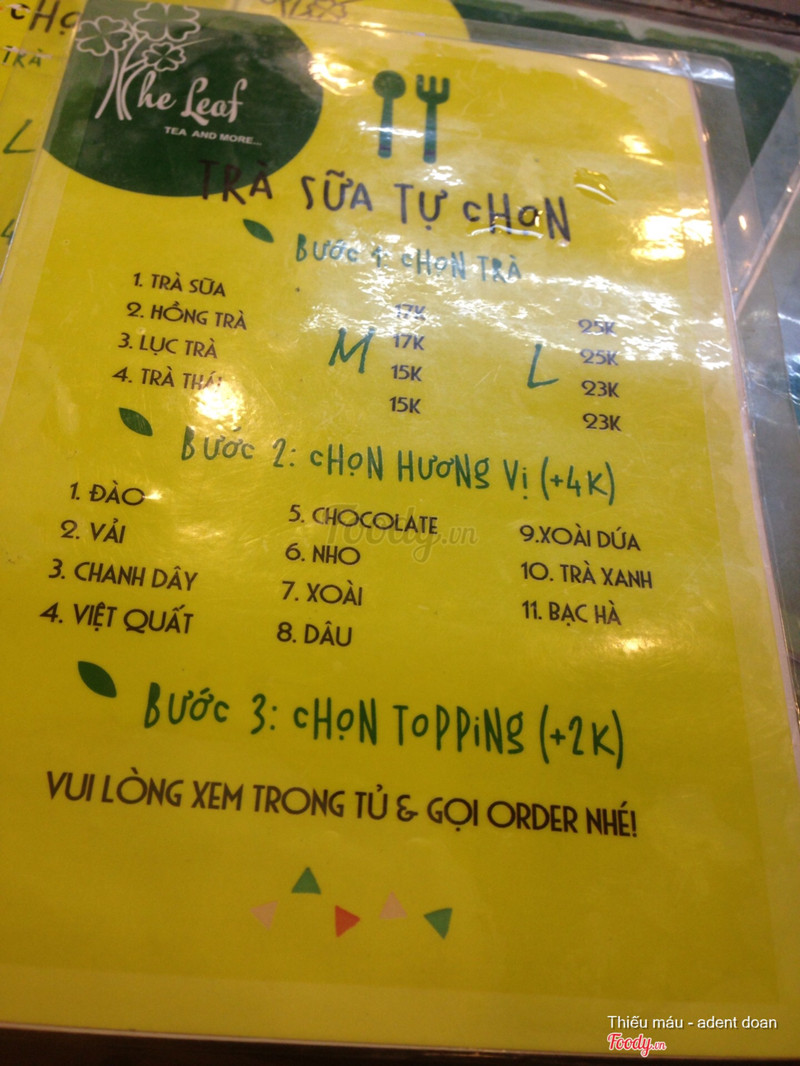 The Leaf
TEA AND MORE...
TRÀ
L
TRÀ SỮA TỰ CHỌN
BƯỚC 1: CHỌN TRÀ
1. TRÀ SỮA 17K 25K
2. HỒNG TRÀ 17K 25K
3. LỤC TRÀ 15K 23K
4. TRÀ THÁI 15K 23K
M L
BƯỚC 2: CHỌN HƯƠNG VỊ (+4K)
1. ĐÀO
2. VẢI
3. CHANH DÂY
4. VIỆT QUẤT
5. CHOCOLATE
6. NHO
7. XOÀI
8. DÂU
9.XOÀI DỨA
10. TRÀ XANH
11. BẠC HÀ
Foody.vn
BƯỚC 3: CHỌN TOPPING (+2K)
VUI LÒNG XEM TRONG TỦ & GỌI ORDER NHÉ!
Thiếu máu - adent doan
Foody.vn